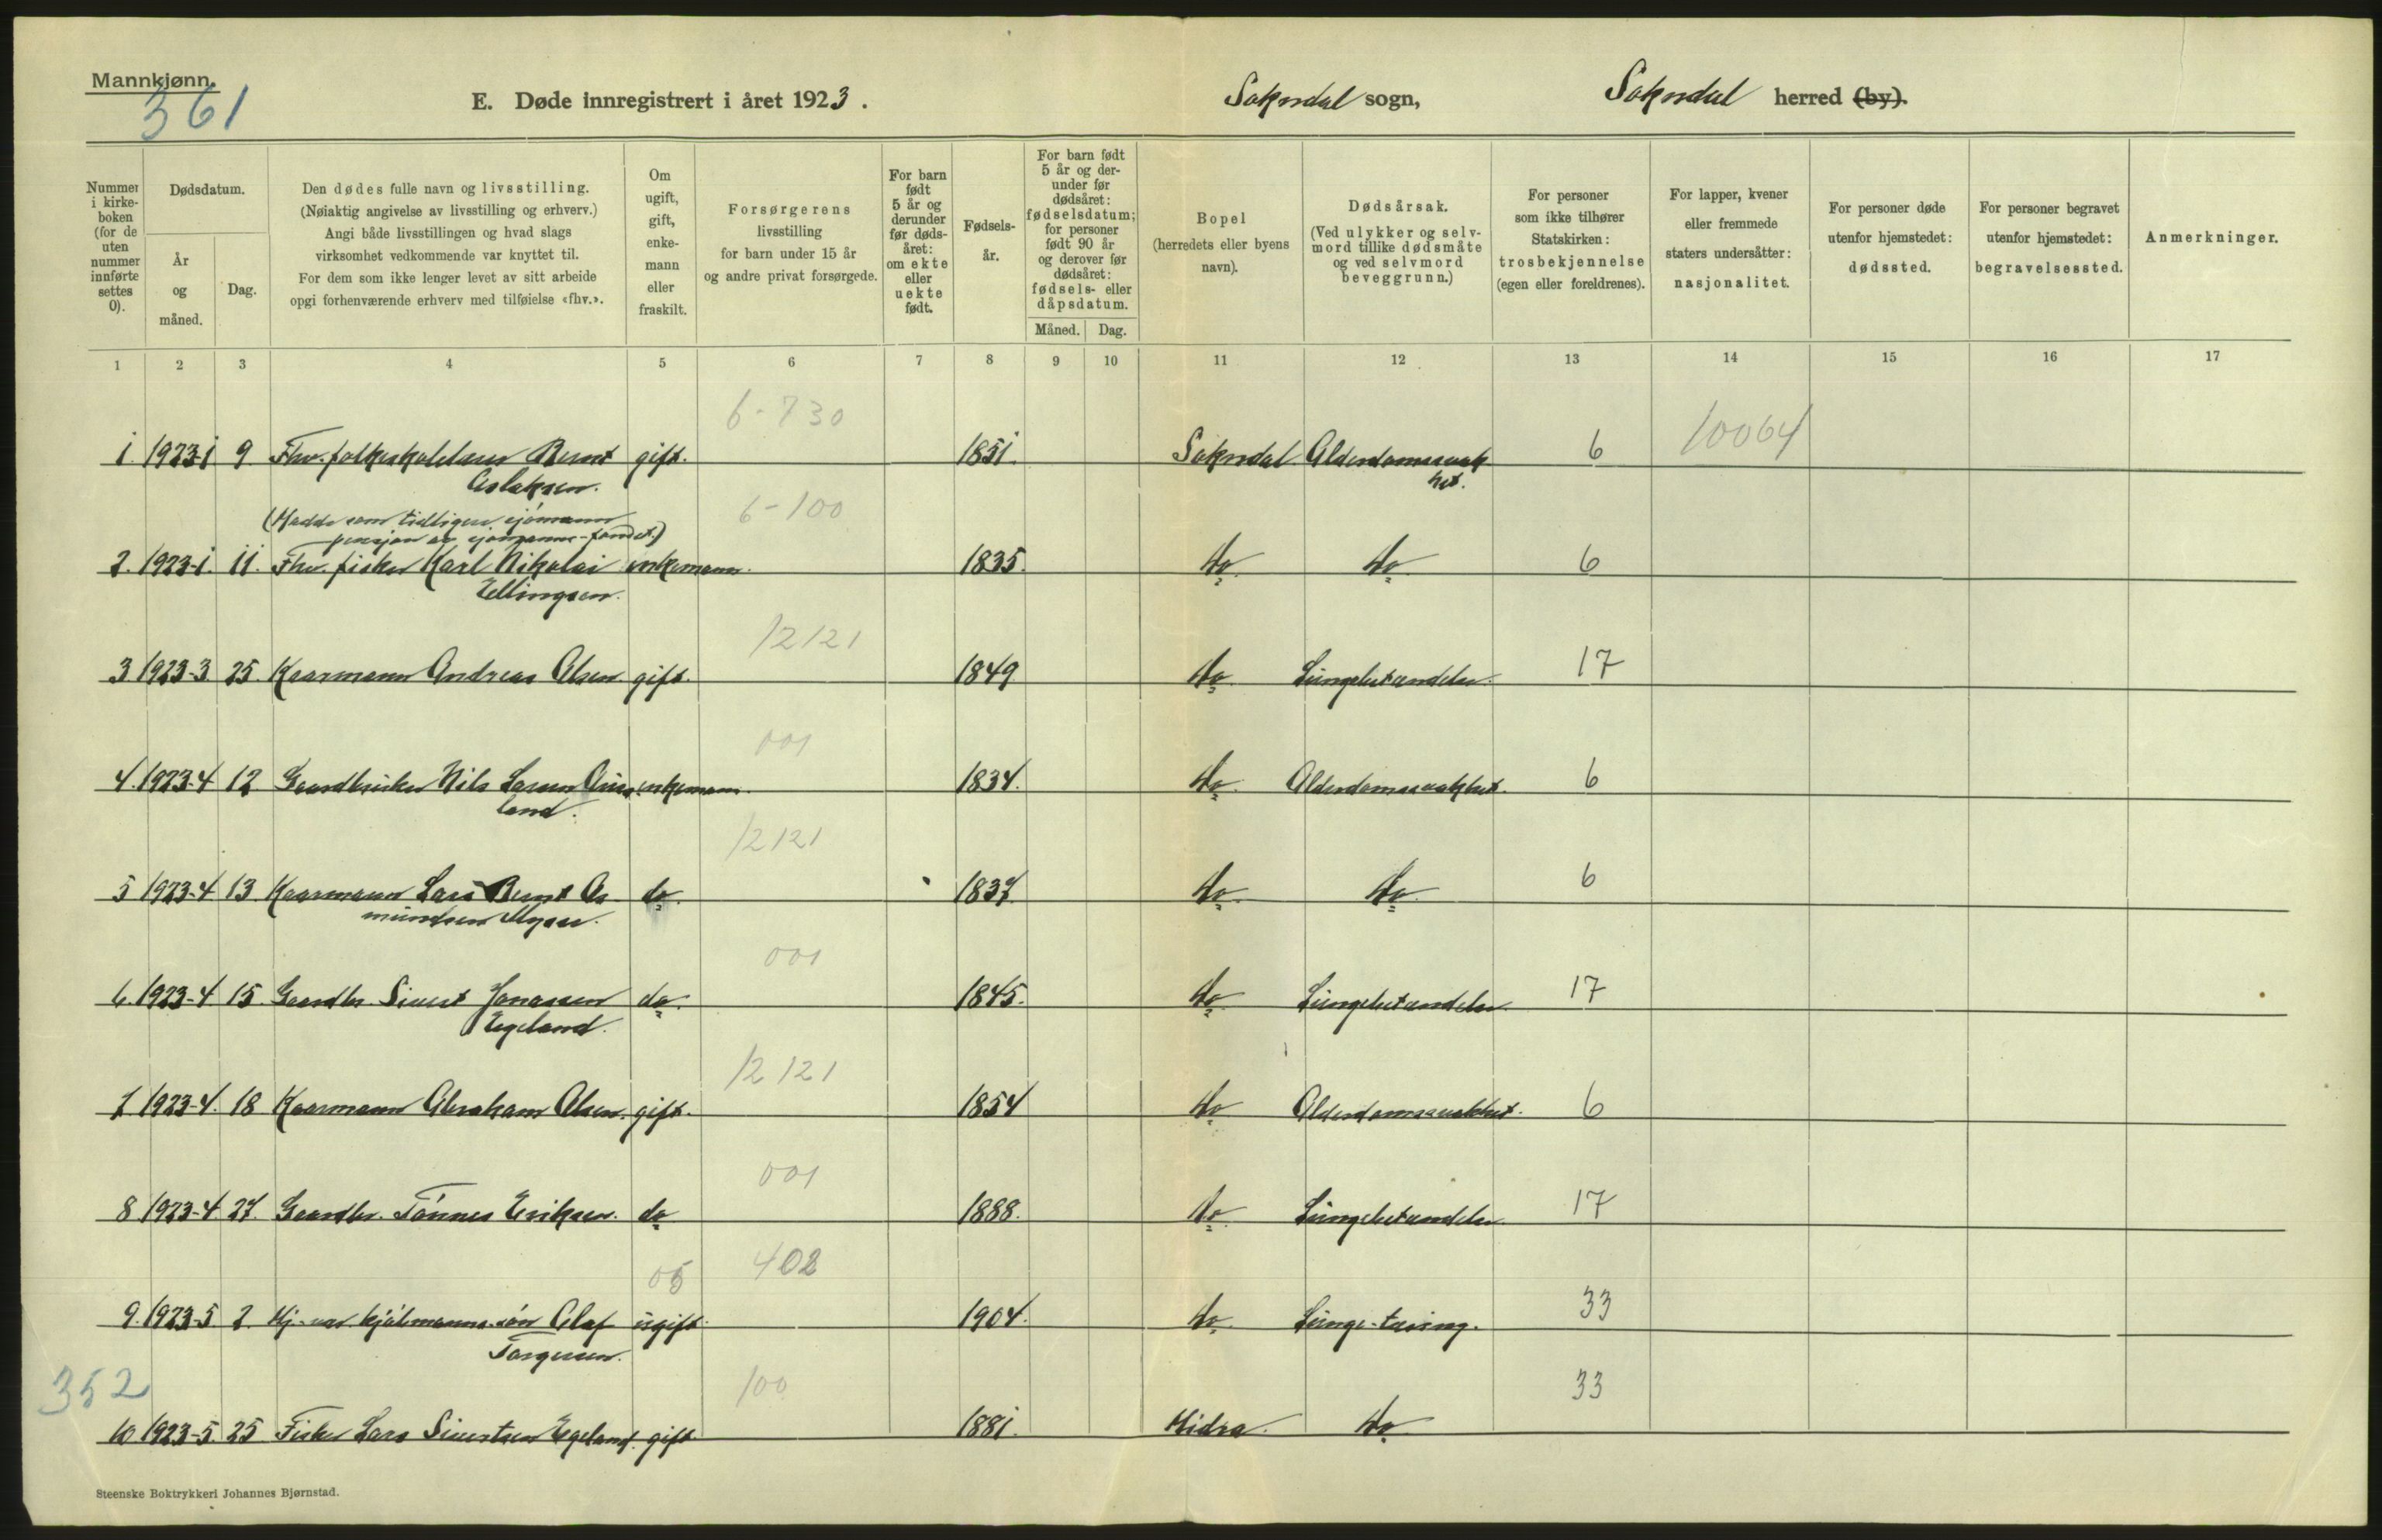 Mannkjønn.
361
E. Døde innregistrert i året 1923.
Sokndal sogn,
Sokndal herred (by).
Nummer i kirke-boken (for de uten nummer innførte settes 0).
Dødsdatum.
År og måned.
Dag.
Den dødes fulle navn og livsstilling.
(Nøiaktig angivelse av livsstilling og erhverv.)
Angi både livsstillingen og hvad slags
virksomhet vedkommende var knyttet til.
For dem som ikke lenger levet av sitt arbeide
opgi forhenværende erhverv med tilføielse «fhv.».
Om ugift, gift, enke-mann eller fraskilt.
Forsørgerens
livsstilling
for barn under 15 år
og andre privat forsørgede.
For barn født 5 år og derunder før døds-året: om ekte eller uekte født.
Fødsels-år.
For barn født 5 år og der-under før dødsåret: fødselsdatum; for personer født 90 år og derover før dødsåret: fødsels- eller dåpsdatum.
Måned. Dag.
Bopel
(herredets eller byens
navn).
Dødsårsak.
(Ved ulykker og selv-
mord tillike dødsmåte
og ved selvmord
beveggrunn.)
For personer
som ikke tilhører
Statskirken:
trosbekjennelse
(egen eller foreldrenes).
For lapper, kvener
eller fremmede
staters undersåtter:
nasjonalitet.
For personer døde
utenfor hjemstedet:
dødssted.
For personer begravet
utenfor hjemstedet:
begravelsessted.
Anmerkninger.
1 2 3 4 5 6 7 8 9 10 11 12 13 14 15 16 17
6-730
1 1923-1 9 Fhv. folkeskolelærer Bernt gift. 1851. Sokndal Alderdomssvak 6 10064
Aslaksen. het.
(Hadde som tidligere sjømann 6-100
pensjon av sjømanns-fondet.)
2. 1923-1. 11. Fhv. fisker Karl Nikolai enkemann. 1835. do do 6
Ellingsen.
12121
3 1923-3 25 Kaarmann Andreas Olsen gift. 1849 do Lungebetændelse. 17
001
4. 1923-4 12 Gaardbruker Nils Larsen enkemann. 1834. do Alderdomssvakhet. 6
land.
12121
5 1923-4 13 Kaarmann Lars Bernt As do 1837. do do 6
mundsen Mysse.
001
6. 1923-4 15. Gaardbr. Sivert Jonassen do 1845. do Lungebetændelse 17
Egeland.
12121
7 1923-4. 18 Kaarmann Abraham Olsen. gift. 1854 do Alderdomssvakhet. 6
001
8. 1923-4 27. Gaardbr. Tønnes Eriksen. do 1888. do Lungebetændelse 17
05 402
9. 1923-5 2. Hj. var hjulmanns-søn Olaf ugift. 1904. do Lunge-tæring. 33
Torgersen.
352 100 33
10 1923-5. 25 Fisker Lars Sivertsen Egeland. gift 1881. Hidra. do
Steenske Boktrykkeri Johannes Bjørnstad.